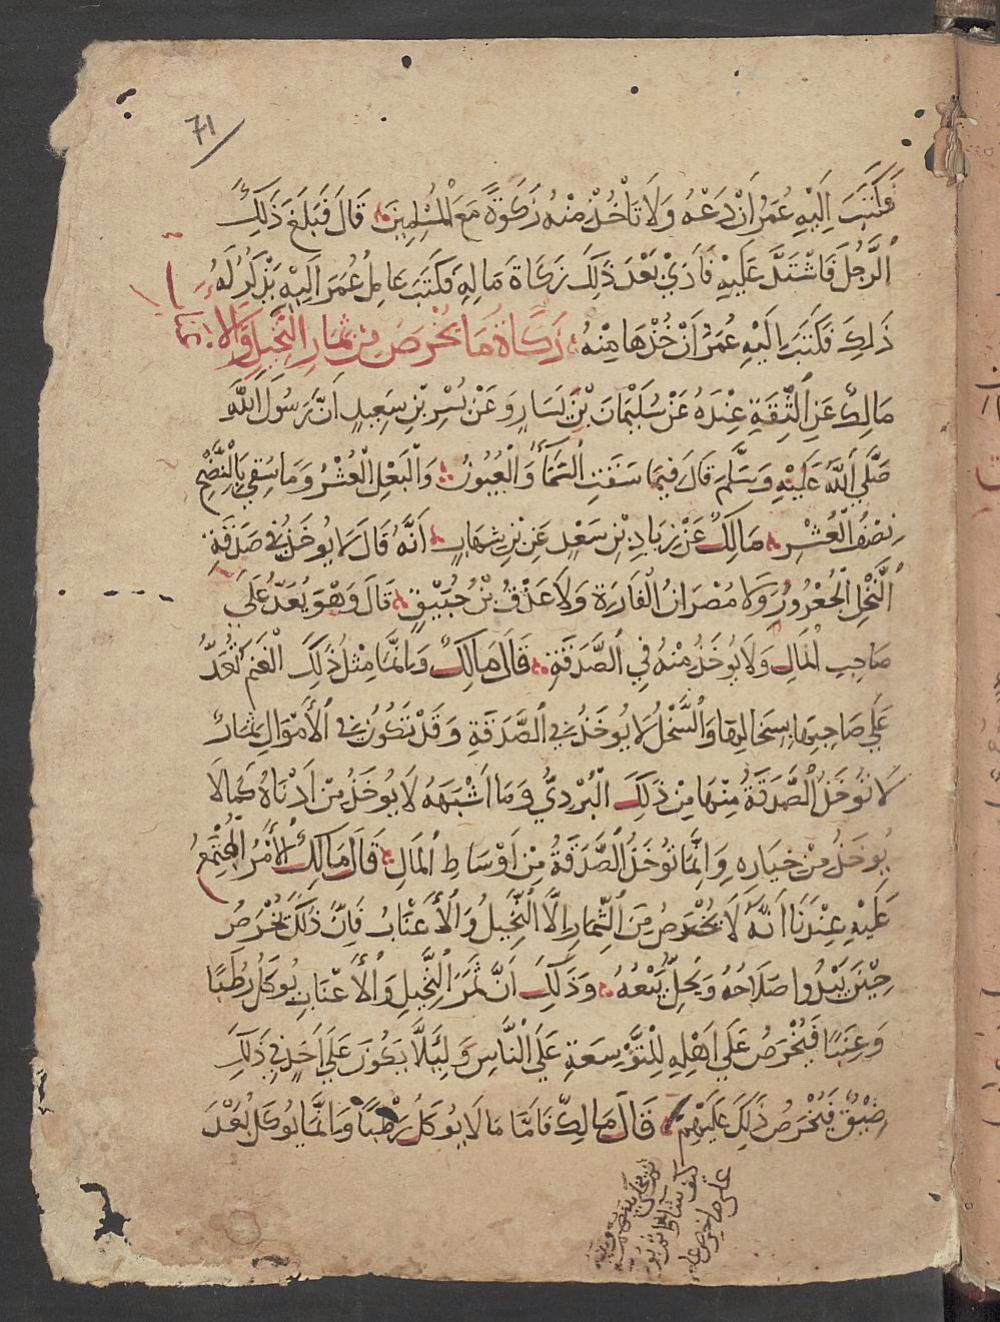 71
فَكَتَبَ اِلَيْهِ عُمَرُ اَنْ دَعْهُ وَلَا تَاْخُذْ مِنْهُ زَكَوةً مَعَ الْمُسْلِمِينَ قَالَ فَبَلَغَ ذَلِكَ
الرَّجُلَ فَاشْتَدَّ عَلَيْهِ فَاَدَّيْ بَعْدَ ذَلِكَ زَكَاةَ مَالِهِ فَكَتَبَ عَامِلُ عُمَرَ اِلَيْهِ يَذْكُرُ لَهُ
ذَلِكَ فَكَتَبَ اِلَيْهِ عُمَرُ اَنْ خُذْهَا مِنْهُ زَكَاةُ مَا يُخْرَصُ مِنْ ثِمَارِ النَّخِيلِ وَالا
مَالِكٌ عَنِ الثِّقَةِ عِنْدَهُ عَنْ سُلَيْمَانَ بْنِ يَسَارٍ وَعَنْ بُسْرِ بْنِ سَعِيدٍ اَنَّ رَسُولَ اللَّهِ
صَلَّي اللَّهُ عَلَيْهِ وَسَلَّمَ قَالَ فِيمَا سَقَتِ السَّمَآءُ وَالْعُيُونُ وَالْبَعْلِ الْعُشْرُ وَمَا سُقِيَ بِالنَّضْحِ
نِصْفُ الْعُشْرِ مَالِكٌ عَنْ زِيَادِ بْنِ سَعْدٍ عَنِ بْنِ شِهَابٍ اَنَّهُ قَالَ لَا يُوخَذُ فِي صَدَقَةِ
النَّخْلِ الْجُعْرُورُ وَلَا مُصْرَانُ الْفَارَةِ وَلَا عَذْقُ بْنِ حُبَيْقٍ قَالَ وَهْوَ يُعَدُّ عَلَي
صَاحِبِ الْمَالِ وَلَا يُوخَذُ مِنْهُ فِي الصَّدَقَةِ قَالَ مَالِكٌ وَاِنَّمَا مِثْلُ ذَلِكَ الْغَنَمُ تُعَدُّ
عَلَي صَاحِبِهَا بِسِخَالِهَا وَالسَّخْلُ لَا يُوخَذُ فِي الصَّدَقَةِ وَقَدْ تَكُونُ فِي الْاَمْوَالِ ثِمَارٌ
لَا تُوخَذُ الصَّدَقَةُ مِنْهَا مِنْ ذَلِكَ الْبُرْدِيُّ وَمَا اَشْبَهَهُ لَا يُوخَذُ مِنْ اَدْنَاهُ كَمَا لَا
يُوخَذُ مِنْ خِيَارِهِ وَاِنَّمَا تُوخَذُ الصَّدَقَةُ مِنْ اَوْسَاطِ الْمَالِ قَالَ مَالِكٌ الْاَمْرُ الْمُجْتَمَعُ
عَلَيْهِ عِنْدَنَا اَنَّهُ لَا يُخْرَصُ مِنَ الثِّمَارِ اِلَّا النَّخِيلُ وَالْاَعْنَابُ فَاِنَّ ذَلِكَ يُخْرَصُ
حِيْنَ يَبْدُوا صَلَاحُهُ وَيَحِلُّ بَيْعُهُ وَذَلِكَ اَنَّ ثَمَرَ النَّخِيلِ وَالْاَعْنَابِ يُوكَلُ رُطَبًا
وَعِنَبًا فَيُخْرَصُ عَلَي اَهْلِهِ لِلتَّوْسِعَةِ عَلَي النَّاسِ وَلِئَلَّا يَكُونَ عَلَي اَحَدٍ فِي ذَلِكَ
ضِيْقٌ فَيُخْرَصُ ذَلِكَ عَلَيْهِمْ قَالَ مَالِكٌ فَاَمَّا مَا لَا يُوكَلُ رَطْبًا وَاِنَّمَا يُوكَلُ بَعْدَ